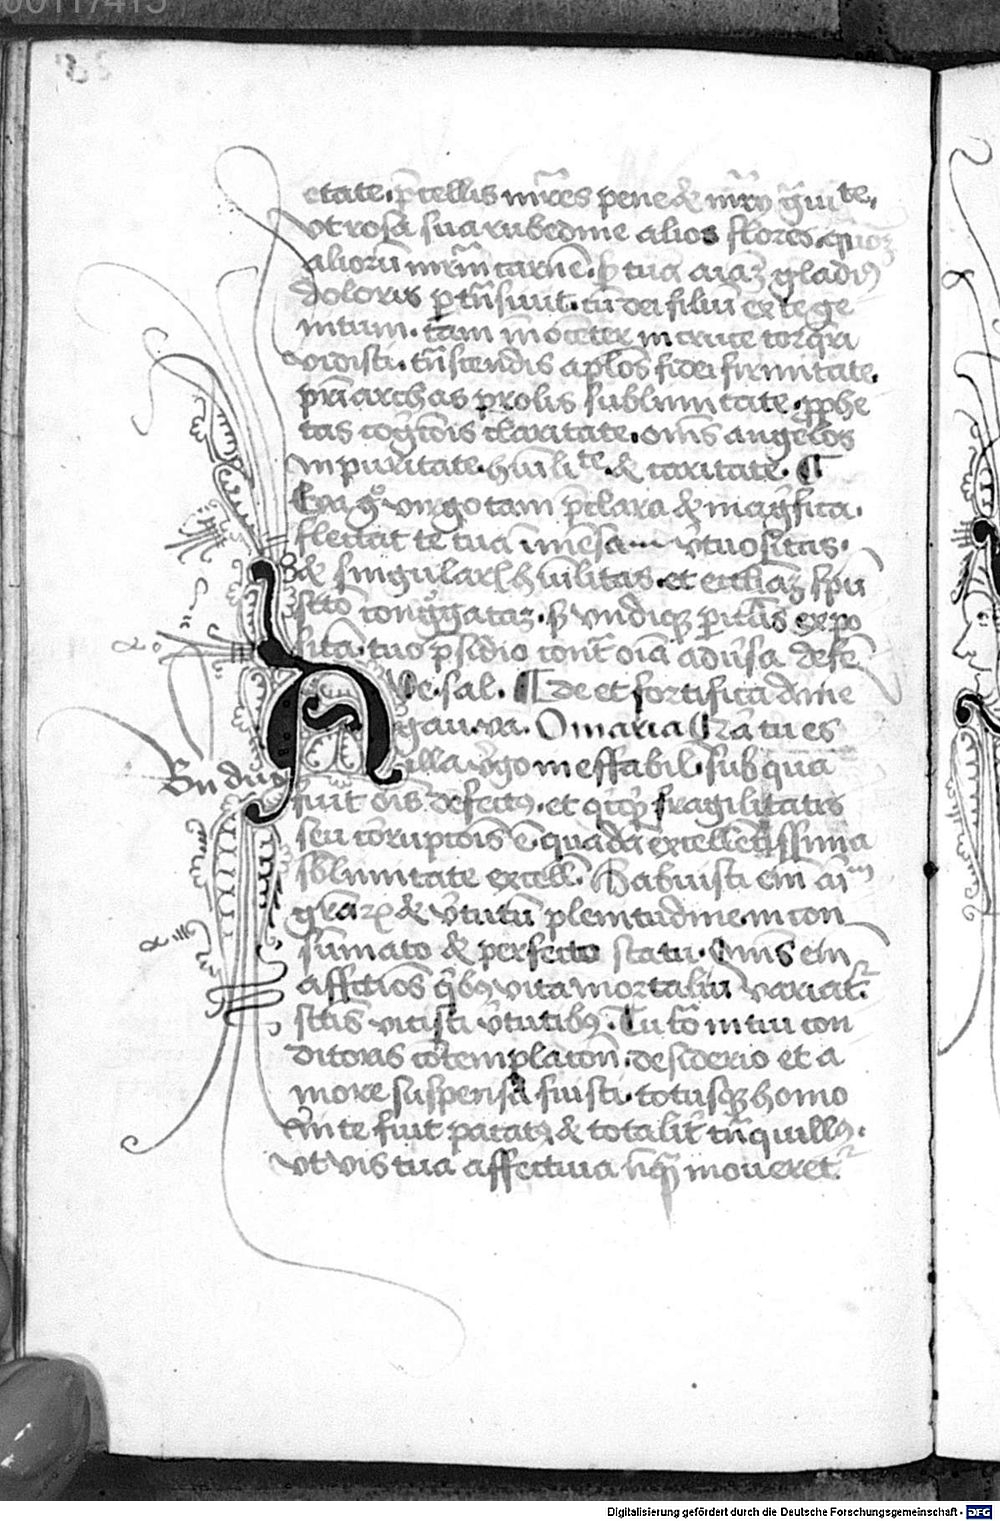 00117415
etate. p̄cellis mr̄es pene & mr̄ꝝ gͣuiᵗᵉ.
vt rosa sua rubedine alios flores. quoꝫ
alioꝝ carnē. tuā aīaꝫ gladiꝰ
doloris ꝑtͣnsiuit. tū dei filiū ex te ge
nitum. tam īnocēter in cruce torq̄ri
vidisti. tͣnscendis apl̄os fidei firmitate.
pr̄iarchas prolis sublimitate. ꝓphe
tas cogͥtōis claritate. om̄s angelos
in puritate. hūiliᵗᵉ. & caritate. ¶
Eya gͦ virgo tam p̄clara & magͥfica.
flectat te tua īmēsa v̓tuositas.
& singularꝭ hūilitas. et eccl̄iaꝫ spū
sctō congͤgataꝫ. undiqꝫ ꝑicl̄is expo
sitā. tuo p̄sidio contͣ oīa adūsa defē
Ave. sal. ¶ De et fortifica dm̄e
gau. vi. O maria Qͣ tu es
illa v̓go ineffabil. sub qua
Bn̄dus
fuit oīs defectꝰ. et fragilitatis
seu corruptōis ē. quadā excellētissima
sblimitate excell. Habuisti em̄ aīᵐ
grāꝝ & v̓tutū plenitudine. in con
sūmato & perfecto statu. Om̄s em̄
affctiōs qͥbꝰ vita mortaliū variatͬ.
sctis vicisti v̓tutibꝰ. Tu in tui con
ditoris cōtemplatōn. desiderio et a
more suspensa fuisti. totusqꝫ homo
in te fuit pacatꝰ & totalit̓ tͣnquillꝰ.
vt vis tua affectiua nūqͣ moueretͬ.
Digitalisierung gefördert durch die Deutsche Forschungsgemeinschaft - DFG